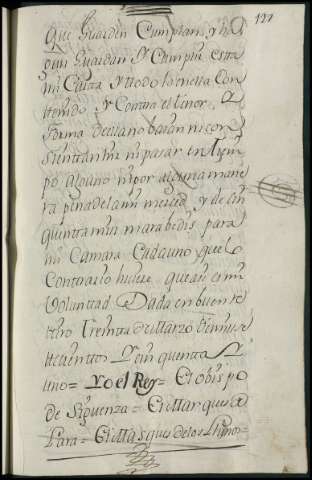 137
Que Guarden Cumplan, y ha
gan Guardar Y Cumplir esta
mi Carta Y ttodo lo en ella Con
ttenido, Y Contra el ttenor, Y
forma de ello no baian ni con
sienttan ir ni pasar en tiem
po alguno ni por alguna mane
ra pena de la mi merced, y de Cin
quentta mil marabedis para
mi Camara Cadauno que lo
Contrario hiciere que asi es mi
Voluntad Dada en buen re
tiro treinta de Marzo de mil se
ttecientos Y cinquentta Y
uno = Yo el Rey = El obispo
de Siguenza = El Marques de
Lara =